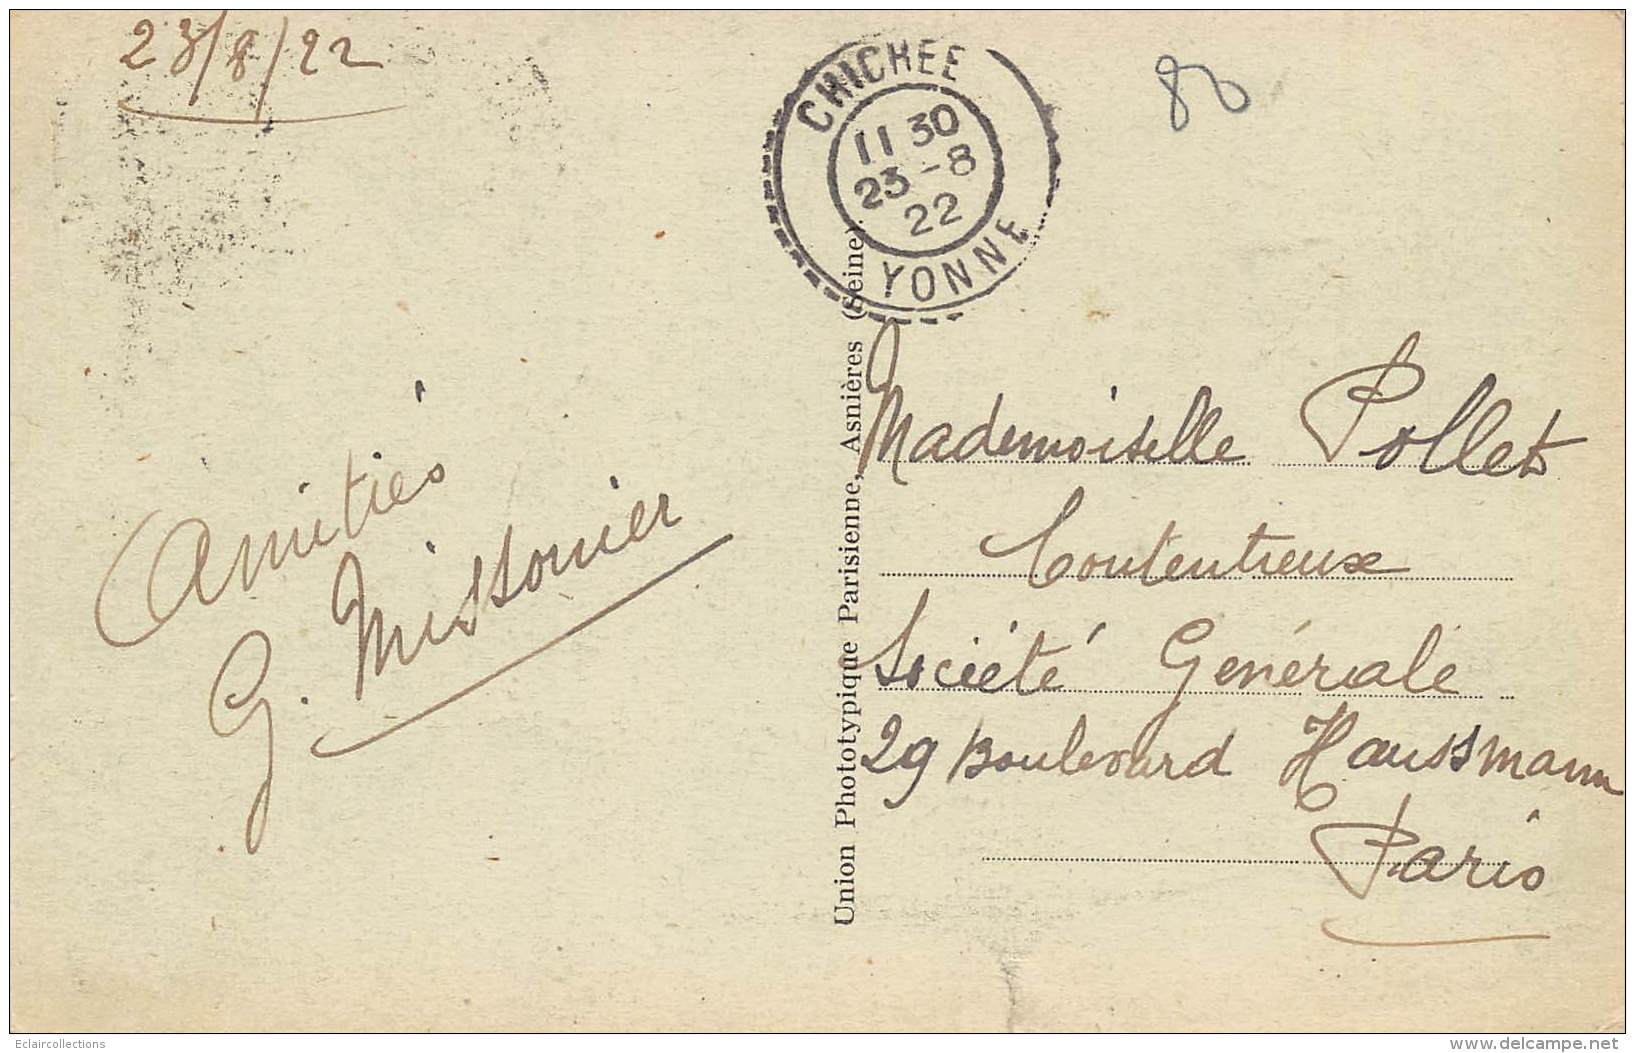 23/8/22
CHICHEE
11 30
23-8
22
YONNE
80
Amitiés
G. Missonier
Union Phototypique Parisienne, Asnières (Seine)
Mademoiselle Pollet
Contentieux
Société Générale
29 Boulevard Haussmann
Paris
Eclaircollections
www.delcampe.net